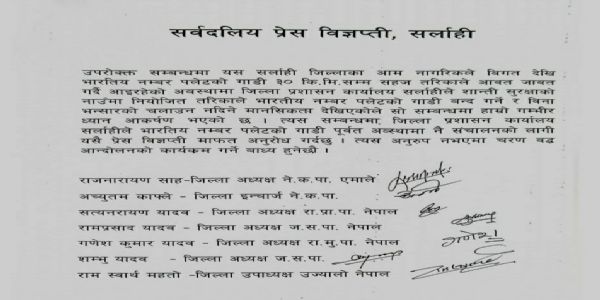 सर्वदलिय प्रेस विज्ञप्ती, सर्लाही
उपरोक्त सम्बन्धमा यस सर्लाही जिल्लाका आम नागरिकले विगत देखि
भारतिय नम्बर पलेटको गाडी ३० कि.मि.सम्म सहज तरिकाले आवत जावत
गर्दै आइरहेको अवस्थामा जिल्ला प्रशासन कार्यालय सर्लाहीले शान्ती सुरक्षाको
नाउँमा नियोजित तरिकाले भारतीय नम्बर पलेटको गाडी बन्द गर्ने र बिना
भन्सारको चलाउन नदिने मानसिकता देखिएकोले सो सम्बन्धमा हाम्रो गम्भीर
ध्यान आकर्षण भएको छ । त्यस सम्बन्धमा जिल्ला प्रशासन कार्यालय
सर्लाहीले भारतिय नम्बर पलेटको गाडी पूर्वत अवस्थामा नै संचालनको लागी
यसै प्रेस विज्ञप्ती माफत अनुरोध गर्दछु । त्यस अनुरुप नभएमा चरण बद्ध
आन्दोलनको कार्यकम गर्ने बाध्य हुनेछौ ।
राजनारायण साह-जिल्ला अध्यक्ष ने.क.पा. एमाले
अच्युतम काफ्ले - जिल्ला इन्चार्ज ने.क.पा.
सत्यनरायण यादव - जिल्ला अध्यक्ष रा.प्रा.पा. नेपाल
रामप्रसाद यादव - जिल्ला अध्यक्ष ज.स.पा. नेपाल
गणेश कुमार यादव - जिल्ला अध्यक्ष रा.मु.पा. नेपाल गणेश
शम्भु यादव - जिल्ला अध्यक्ष ज.स.पा.
राम स्वार्थ महतो -जिल्ला उपाध्यक्ष उज्यालो नेपाल